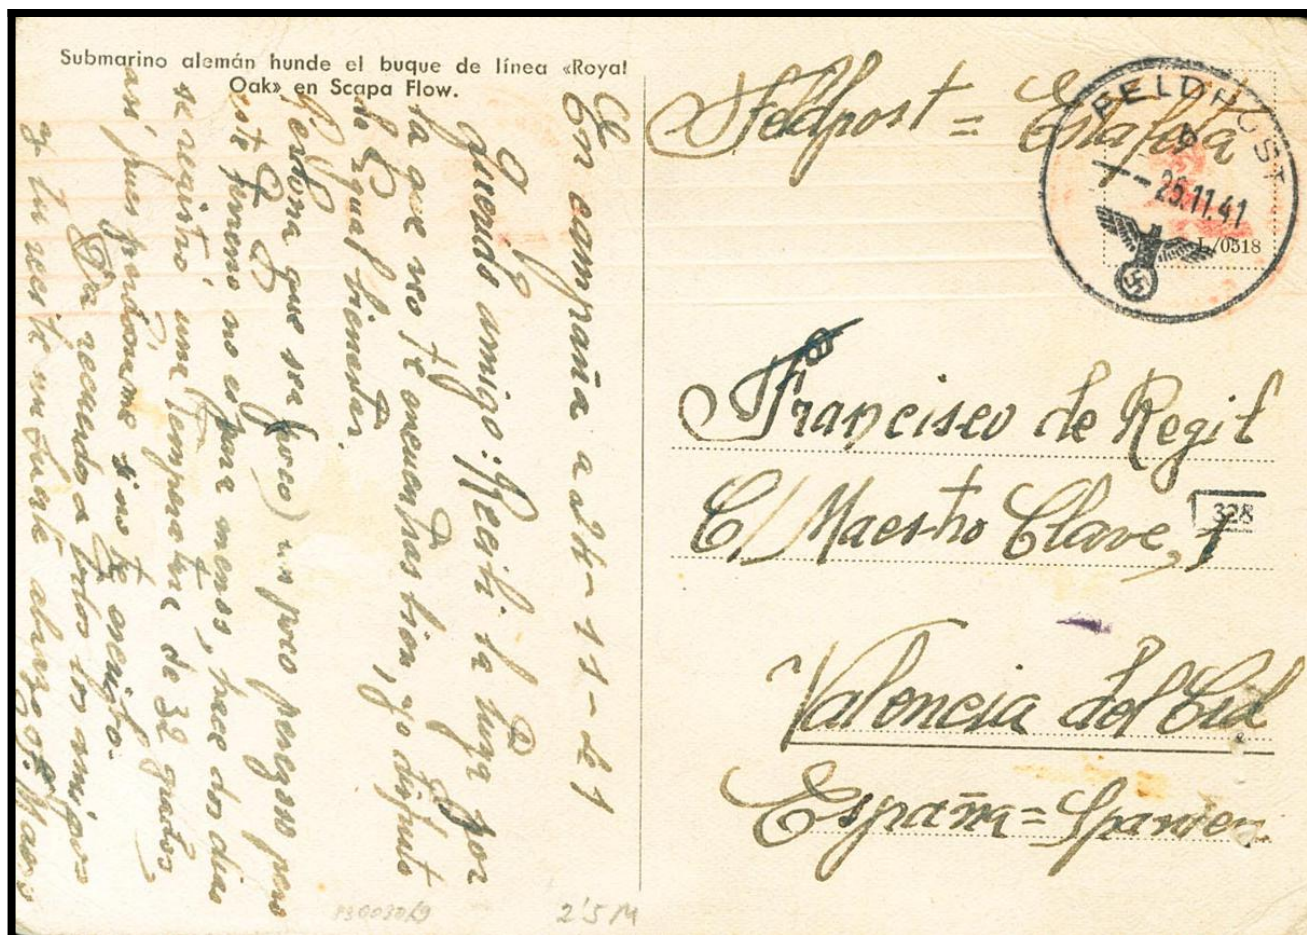 Submarino alemán hunde el buque de línea «Royal
Oak» en Scapa Flow.
En campaña a 24-11-41
Querido amigo: Regit. la tuya por
la que veo te encuentras bien, yo disfruto
de igual bienestar.
Perdona que sea (poco) un poco perezoso pero
este terreno no es por menos, hace dos dias
se rejistró una temperatura de 32 grados
asi pues perdoname si no te escribo.
Da recuerdos a todos los amigos
y tu recibe un fuerte abrazo
Feldpost = Estafeta
FELDPOST
b
- 25.11.41
L/0518
Francisco de Regil
C/ Maestro Clave, 1
328
Valencia del Cid
España = Spanien
2'5 M